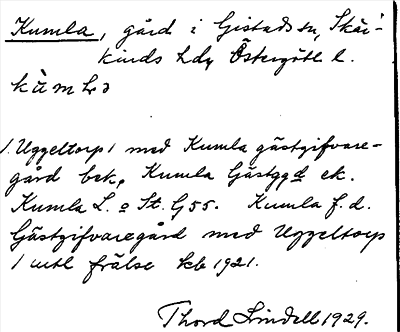 Kumla, gård i Gistads sn, Skär-
kinds hd, Östergötl. l.
kùmLa
1. Uggeltorp 1 med Kumla gästgifvare-
gård bek., Kumla Gästggd ek.
Kumla L. o St. G 55. Kumla f. d.
Gästgifvaregård med Uggeltorp
1 mtl frälse kb 1921.
Thord Lindell 1929.